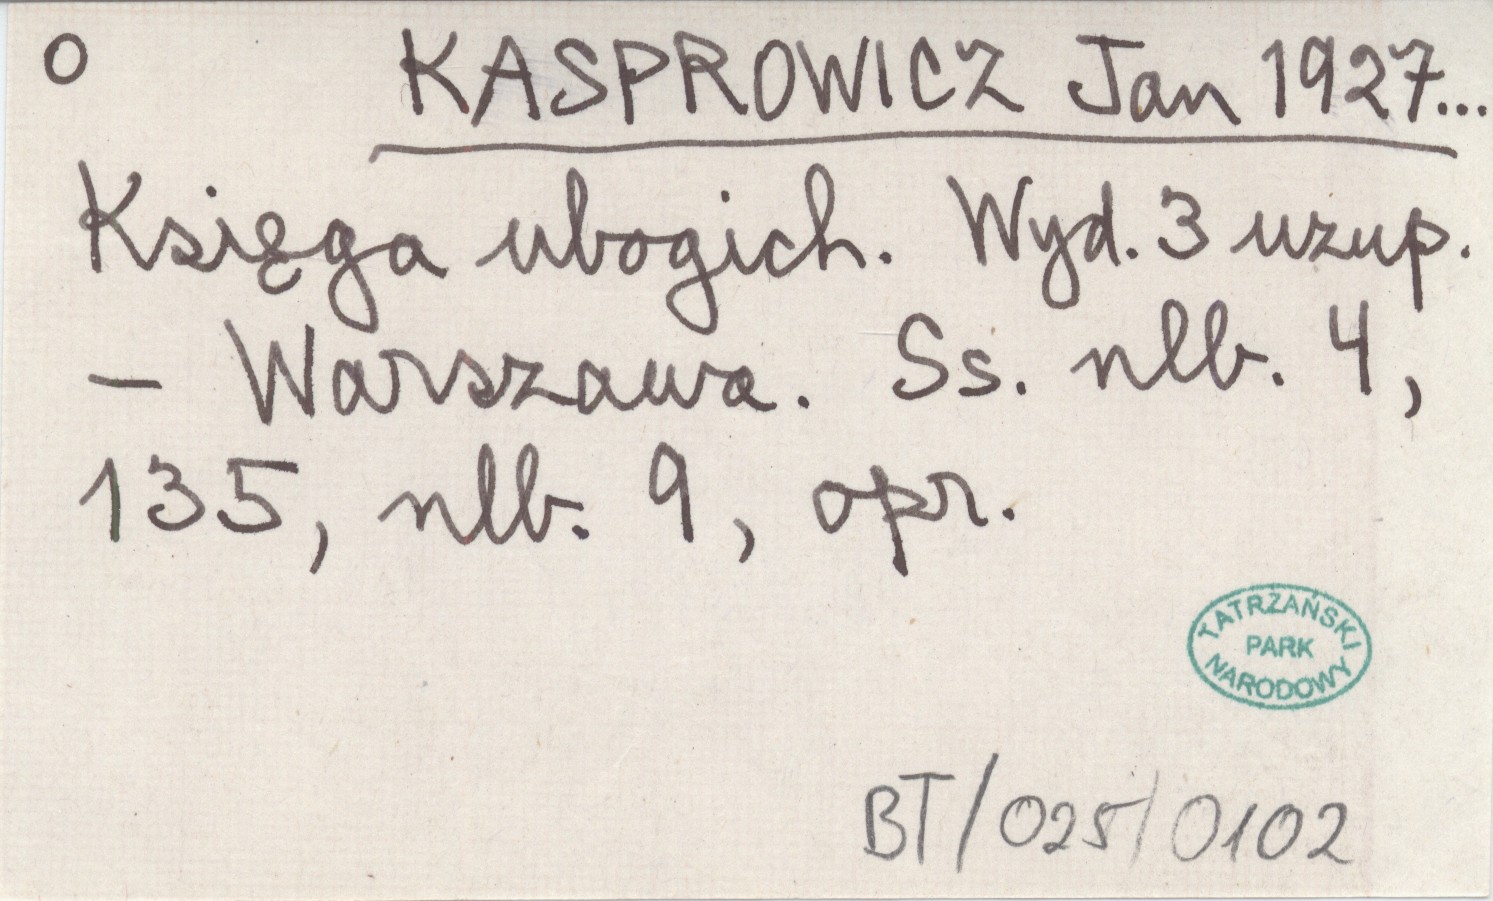 O KASPROWICZ Jan 1927...
Księga ubogich. Wyd. 3 uzup.
– Warszawa. Ss. nlb. 4,
135, nlb. 9, opr.
TATRZAŃSKI
PARK
NARODOWY
BT/025/0102